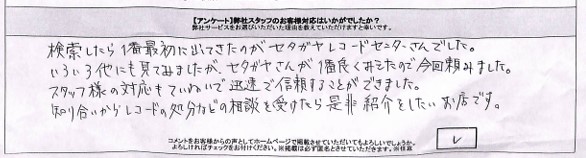 【アンケート】弊社スタッフのお客様対応はいかがでしたか？
弊社サービスをお選びいただいた理由を教えていただけますと幸いです。
検索したら1番最初に出てきたのがセタガヤレコードセンターさんでした。
いろいろ他にも見てみましたが、セタガヤさんが1番良くみえたので今回頼みました。
スタッフ様の対応もていねいで迅速で信頼することができました。
知り合いからレコードの処分などの相談を受けたら是非紹介をしたいお店です。
コメントをお客様からの声としてホームページで掲載させていただいてもよろしいでしょうか。
よろしければチェックをお付けください。※掲載は必ず匿名とさせていただきます。